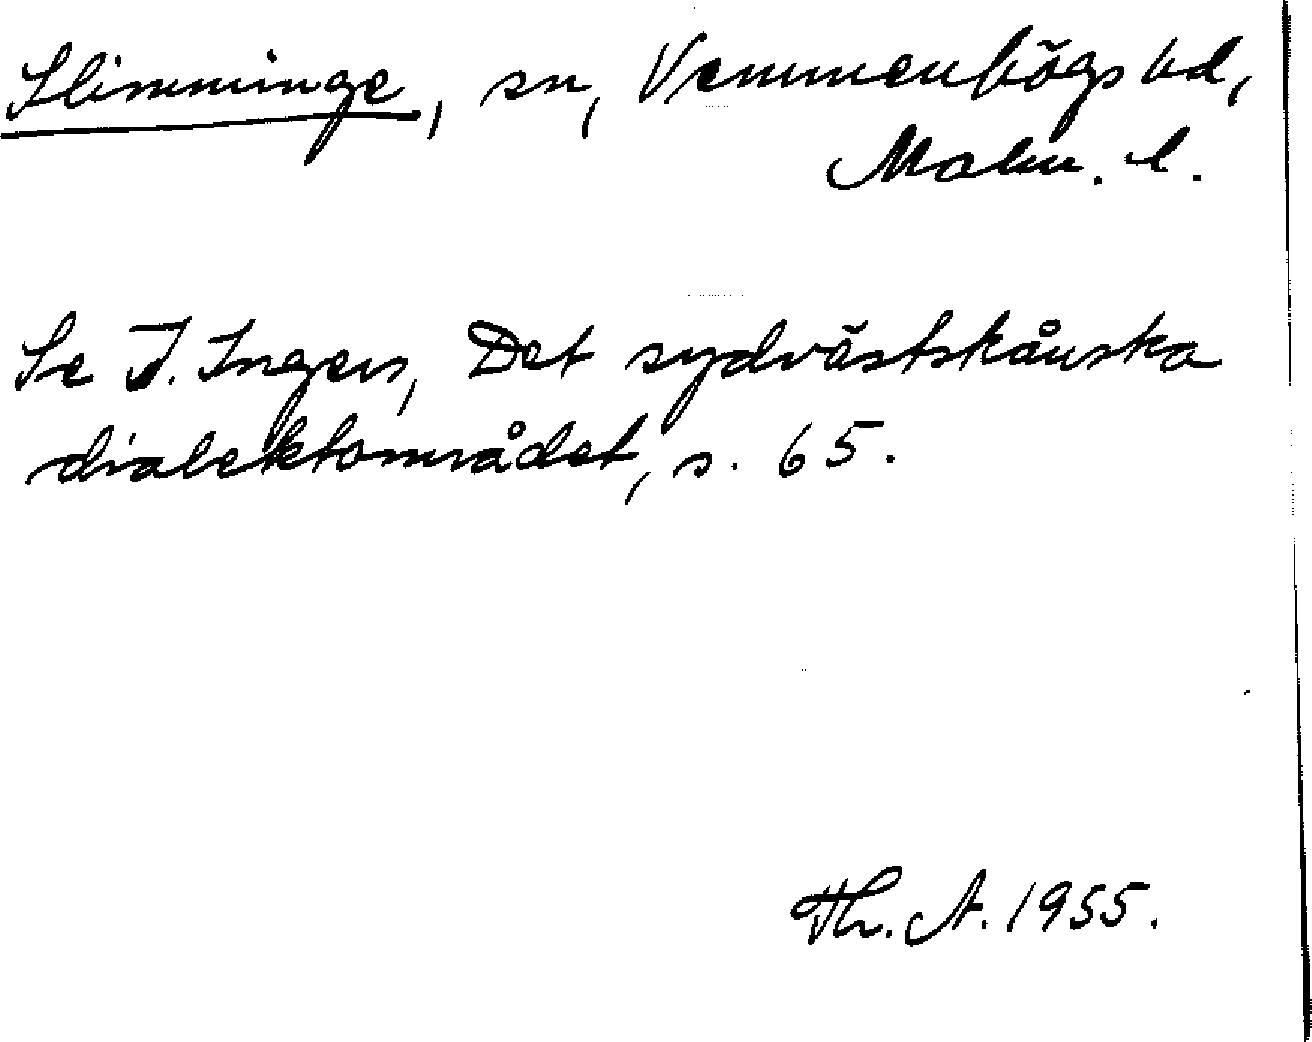 Slimminge, sn, Vemmenhögs hd,
Malm. l.
Se I. Ingers, Det sydvästskånska
dialektområdet, s. 65.
Th. A. 1955.